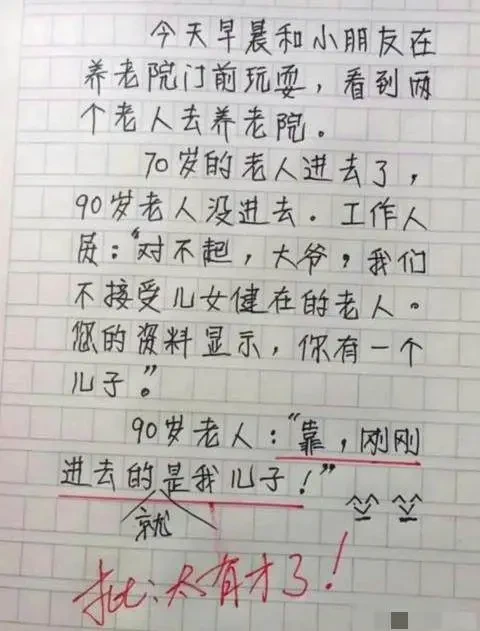 今天早晨和小朋友在
养老院门前玩耍，看到两
个老人去养老院。
70岁的老人进去了，
90岁老人没进去。工作人
员：“对不起，大爷，我们
不接受儿女健在的老人。
您的资料显示，你有一个
儿子”。
90岁老人：“靠，刚刚
进去的是我儿子！”
就
批：太有才了！